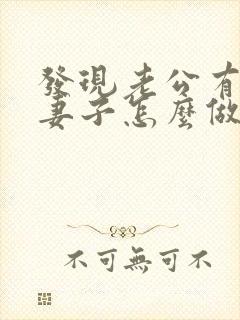 發現老公有
妻子怎麼做
不可無可不